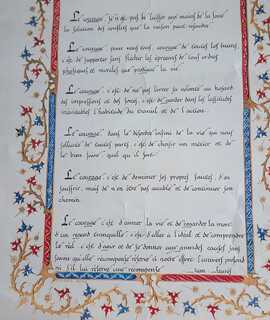 Le courage, ce n'est pas de laisser aux mains de la force
la solution des conflits que la raison peut résoudre.
Le courage pour nous tous, courage de toutes les heures
c'est de supporter sans fléchir les épreuves de tout ordre
physiques et morales que prodigue la vie.
Le courage, c'est de ne pas livrer sa volonté au hasard
des impressions et des forces, c'est de garder dans les lassitudes
inévitables l'habitude du travail et de l'action.
Le courage, dans le désordre infini de la vie qui nous
sollicite de toutes parts, c'est de choisir un métier et de
le bien faire quel qu'il soit.
Le courage c'est de dominer ses propres fautes, d'en
souffrir, mais de n'en être pas accablé et de continuer son
chemin.
Le courage c'est d'aimer la vie et de regarder la mort
d'un regard tranquille, c'est d'aller à l'idéal et de comprendre
le réel, c'est d'agir et de se donner aux grandes causes sans
savoir quelle récompense réserve à notre effort l'univers profond
ni s'il lui réserve une récompense. Jean Jaurès